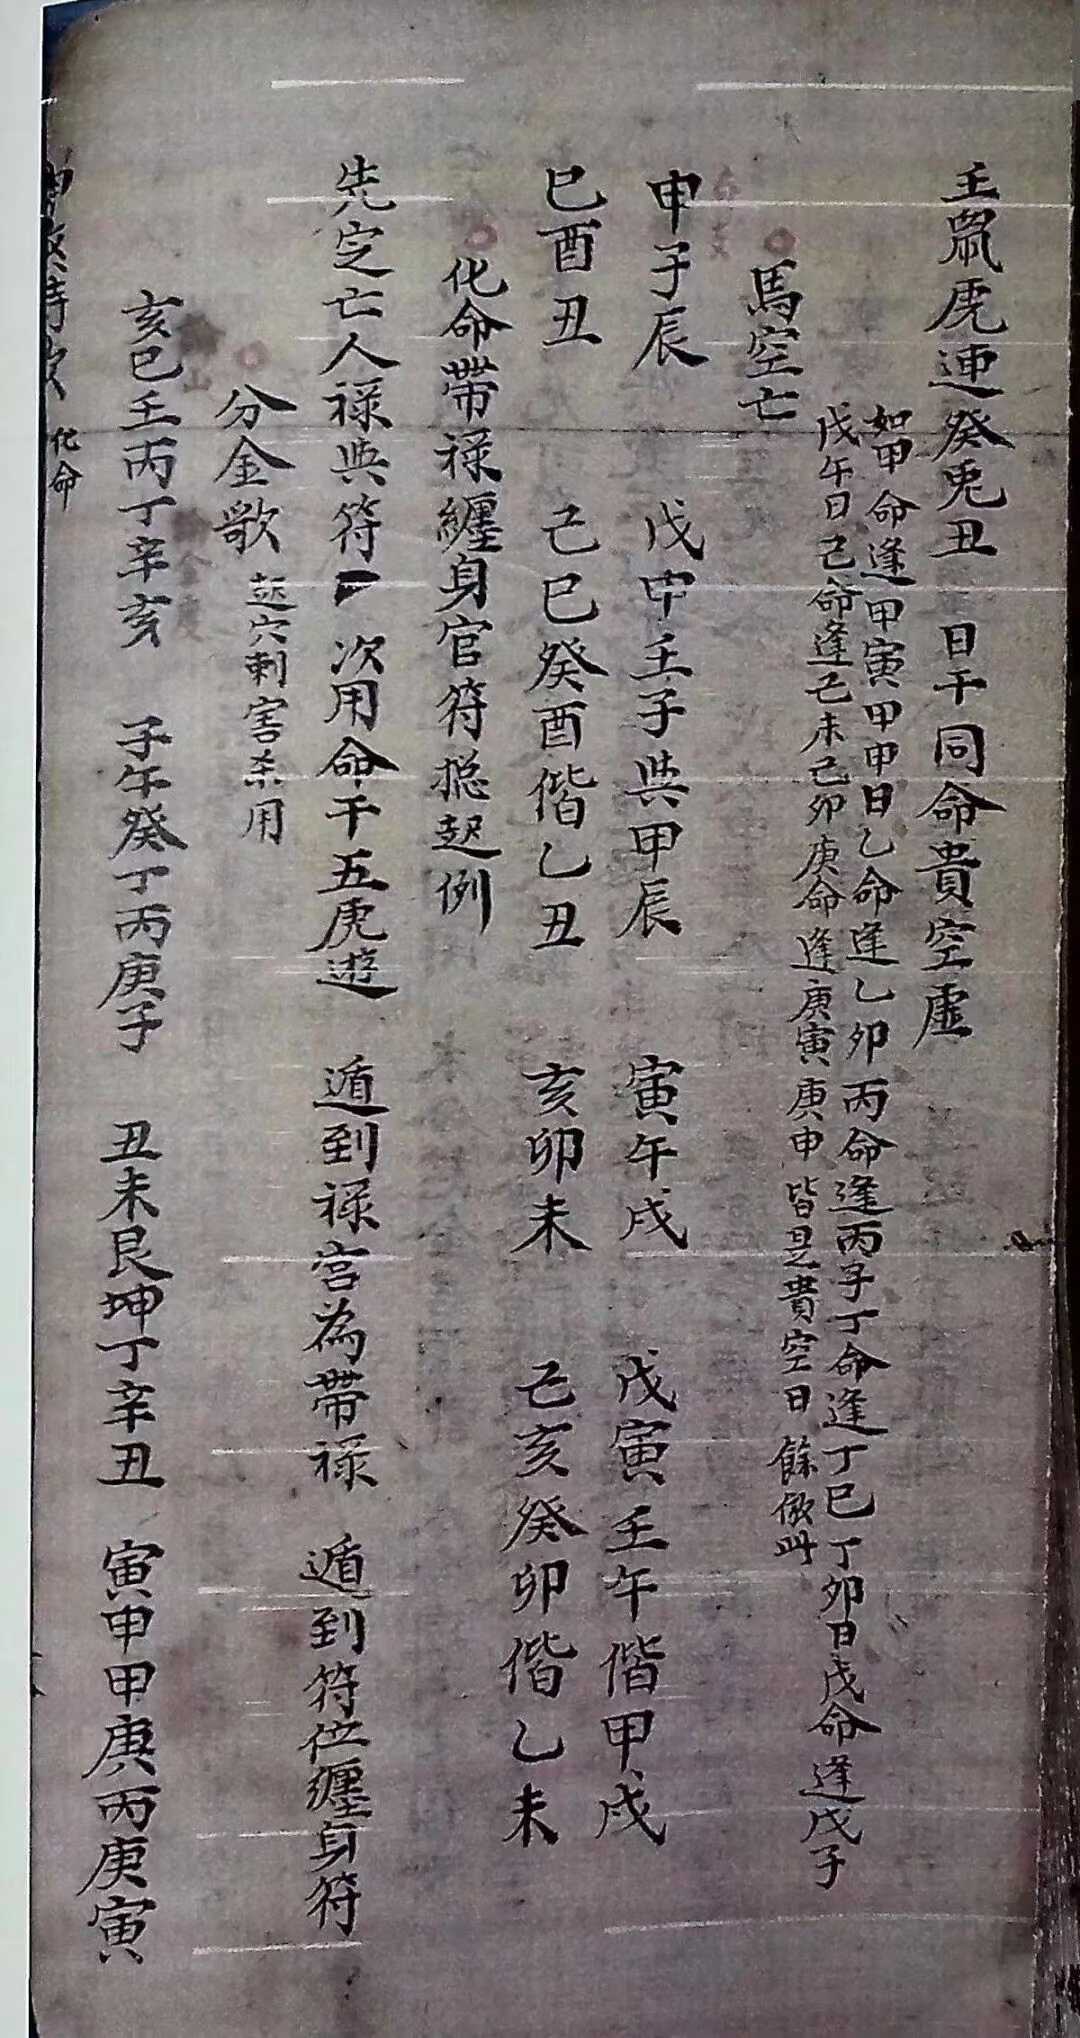 壬鼠虎連癸兎丑 日干同命貴空虛
如甲命逢甲寅甲申日乙命逢乙卯丙命逢丙子丁命逢丁巳丁卯日戊命逢戊子
戊午日己命逢己未己卯庚命逢庚寅庚申皆是貴空日 餘倣此
馬空亡
申子辰 戊申壬子與甲辰 寅午戌 戊寅壬午偕甲戌
巳酉丑 己巳癸酉偕乙丑 亥卯未 己亥癸卯偕乙未
化命帶祿纏身官符捴起例
先定亡人祿與符 次用命干五虎遊 遁到祿宮為帶祿 遁到符位纏身符
分金歌 起穴刺害杀用
亥巳壬丙丁辛亥 子午癸丁丙庚子 丑未艮坤丁辛丑 寅申甲庚丙庚寅
化命